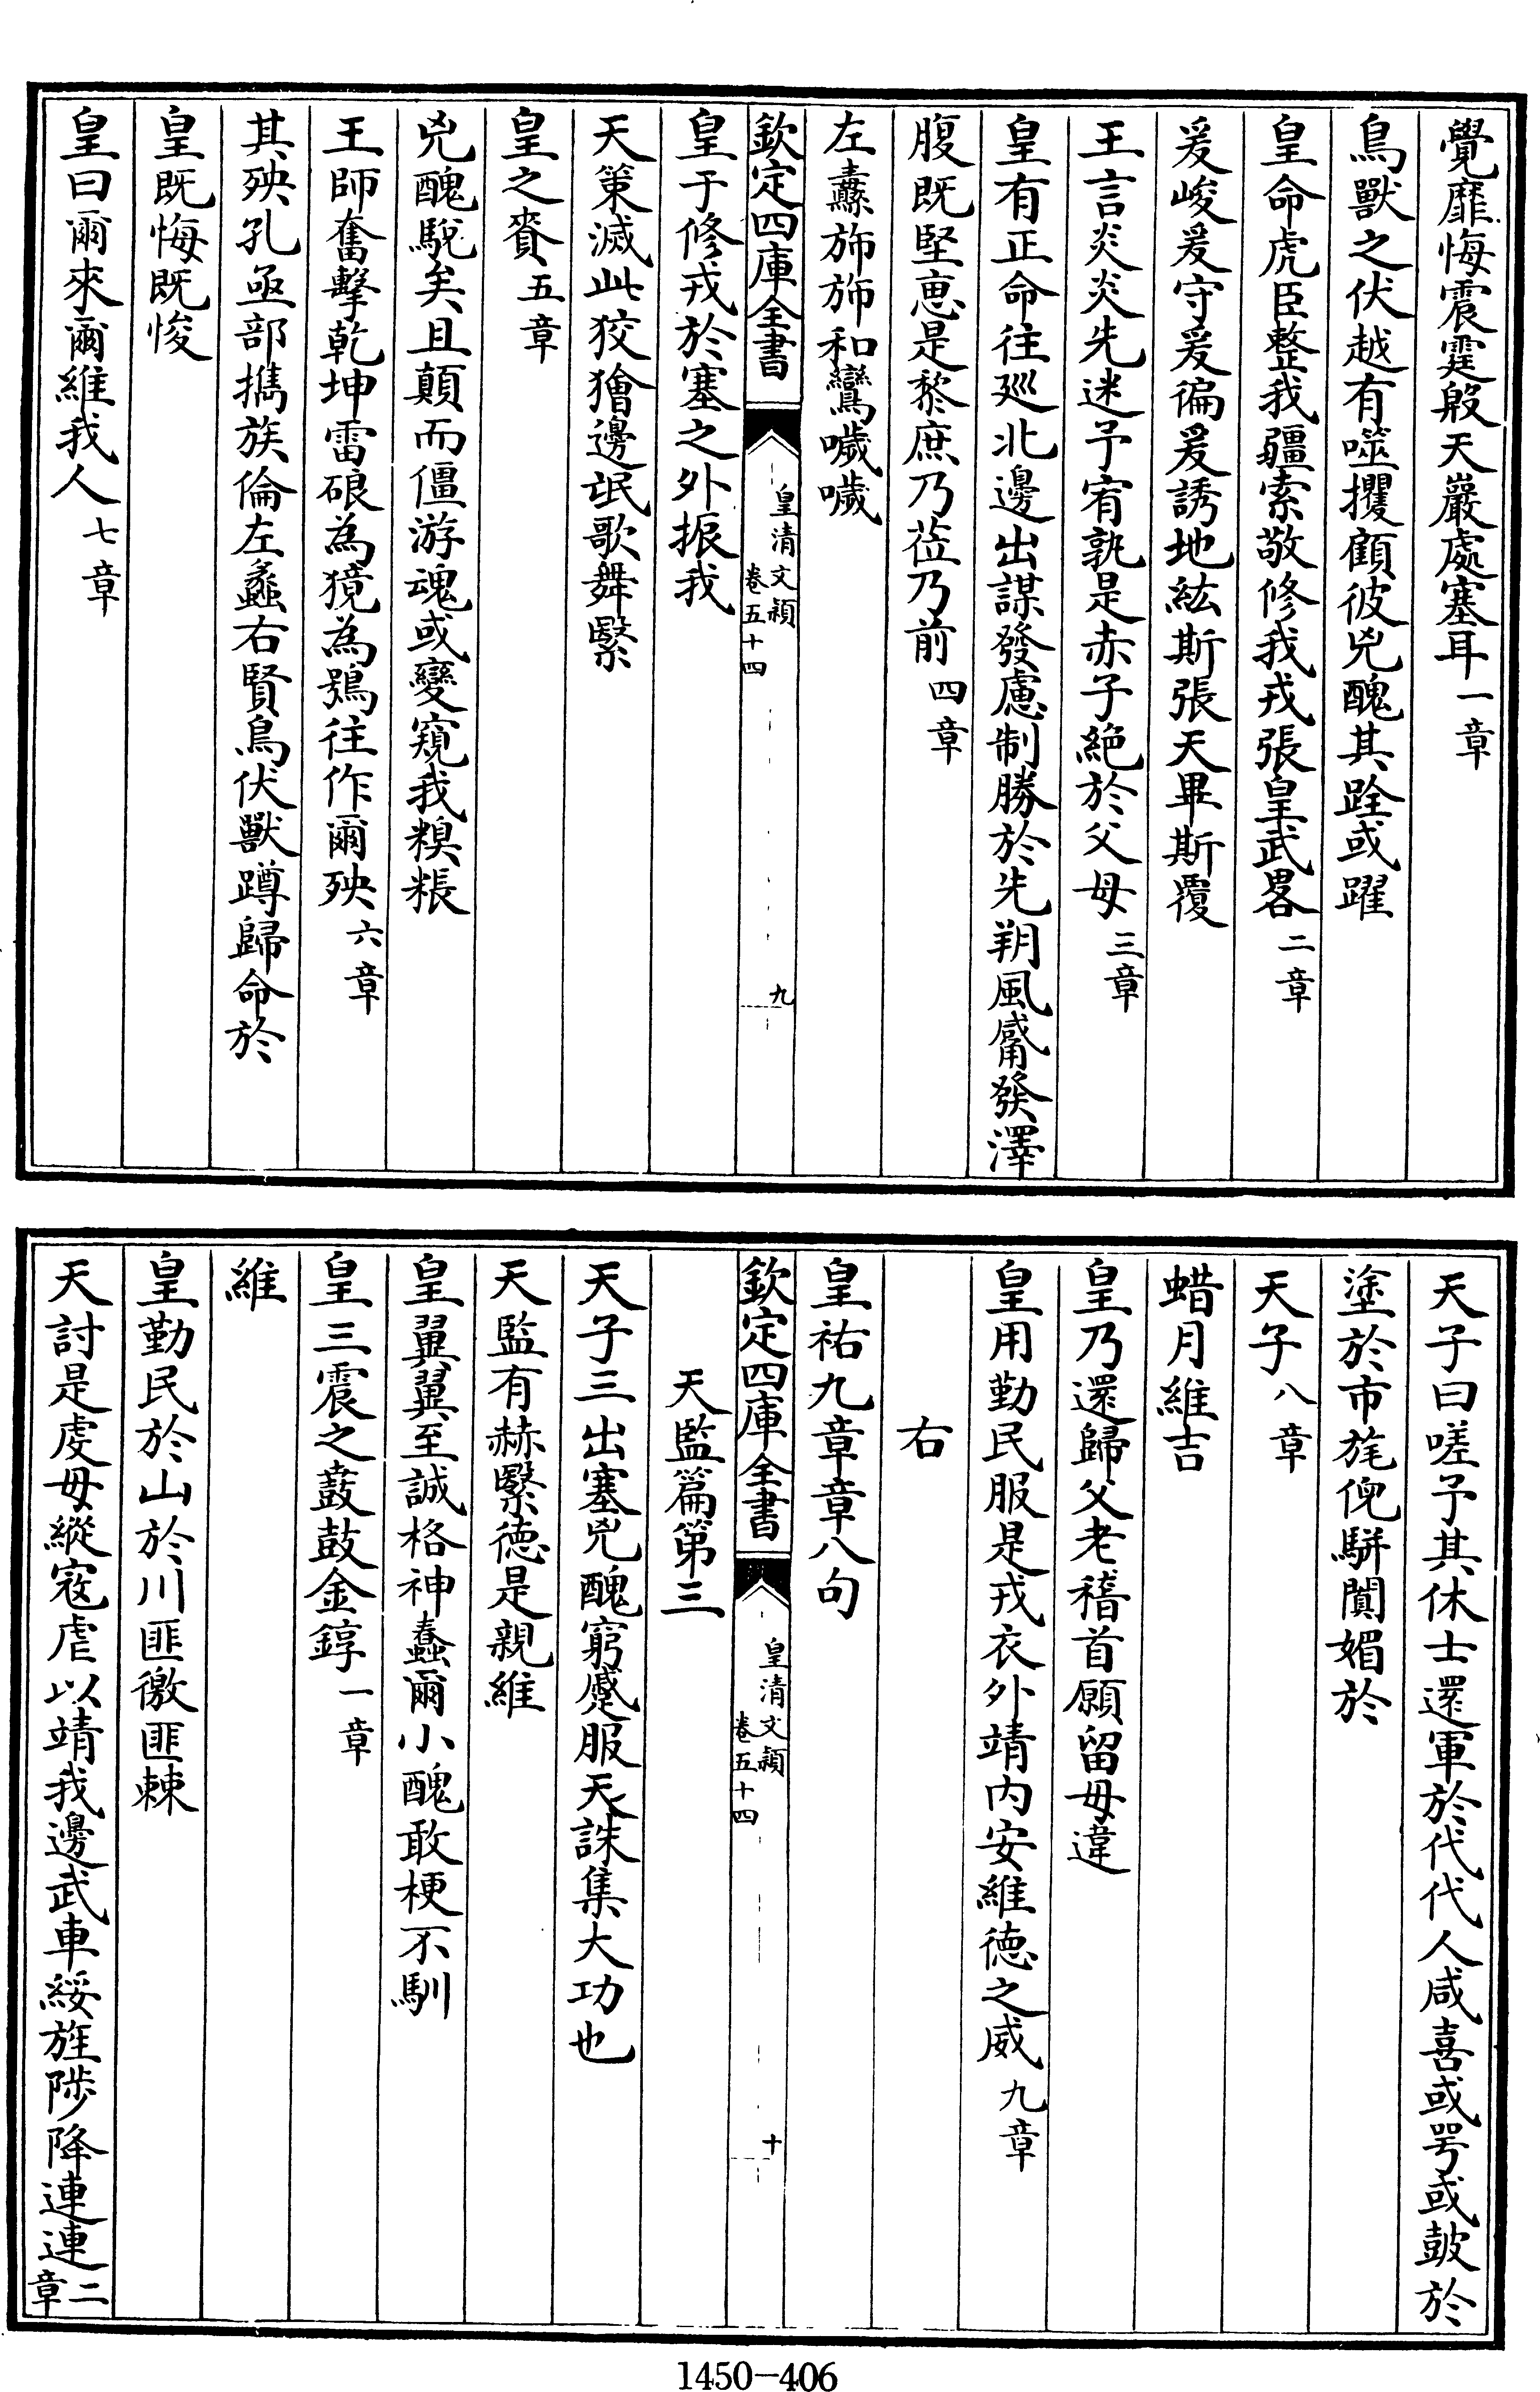 覺靡悔震霆殷天嚴處塞耳一章
鳥獸之伏越有噬攫顧彼兇醜其跧或躍
皇命虎臣整我疆索敬修我戎張皇武畧二章
爰峻爰守爰徧爰誘地紘斯張天畢斯覆
王言炎炎先迷予宥孰是赤子絶於父母三章
皇有正命往廵北邊出謀發慮制勝於先朔風觱發澤
腹既堅恵是黎庶乃莅乃前四章
左纛斾斾和鸞噦噦
欽定四庫全書
皇清文穎
卷五十四
九
皇于修戎於塞之外振我
天策滅此狡獪邊氓歌舞繄
皇之賚五章
兇醜駾矣且顛而僵游魂或變窺我糗粻
王師奮擊乾坤雷硠為獍為鴞往作爾殃六章
其殃孔亟部攜族倫左蠡右賢鳥伏獸蹲歸命於
皇既悔既悛
皇曰爾來爾維我人七章
天子曰嗟予其休士還軍於代代人咸喜或咢或鼓於
塗於市旄倪駢闐媚於
天子八章
蜡月維吉
皇乃還歸父老稽首願留毋違
皇用勤民服是戎衣外靖内安維德之威九章
右
皇祐九章章八句
欽定四庫全書
皇清文穎
卷五十四
十
天監篇第三
天子三出塞兇醜窮蹙服天誅集大功也
天監有赫繄德是親維
皇翼翼至誠格神蠢爾小醜敢梗不馴
皇三震之鼖鼓金錞一章
維
皇勤民於山於川匪徼匪棘
天討是虔毋縱寇虐以靖我邊武車綏旌陟降連連二章
1450-406